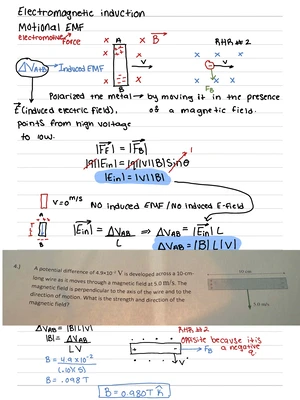 Electromagnetic induction
Motional EMF
electromotive force
x A x B x RHR #2
x x v
ΔV_A→B → Induced EMF
x B x F_B
Polarized the metal → by moving it in the presence
E (induced electric field), of a magnetic field.
points from high voltage
to low.
|F_E| = |F_B|
|q||Ein| = |q||v||B| Sinθ 1
|Ein| = |v||B|
V = 0 m/s
NO induced EMF / No induced E-field
A
|Ein| = ΔV_AB / L ⇒ ΔV_AB = |Ein| L
B
ΔV_AB = |B| L |v|
4.) A potential difference of 4.9×10⁻² V is developed across a 10-cm-
long wire as it moves through a magnetic field at 5.0 m/s. The
magnetic field is perpendicular to the axis of the wire and to the
direction of motion. What is the strength and direction of the
magnetic field?
10 cm
5.0 m/s
ΔV_AB = |B| L |v|
|B| = ΔV_AB / L V
B = 4.9 x 10⁻² / (.10)(5)
B = .098 T
RHR #2
opposite because it is
a negative
q.
F_B
v
B = 0.980T n̂